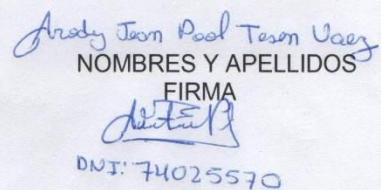 Arody Jean Pool Tesen Vaez
NOMBRES Y APELLIDOS
FIRMA
DNI: 74025570